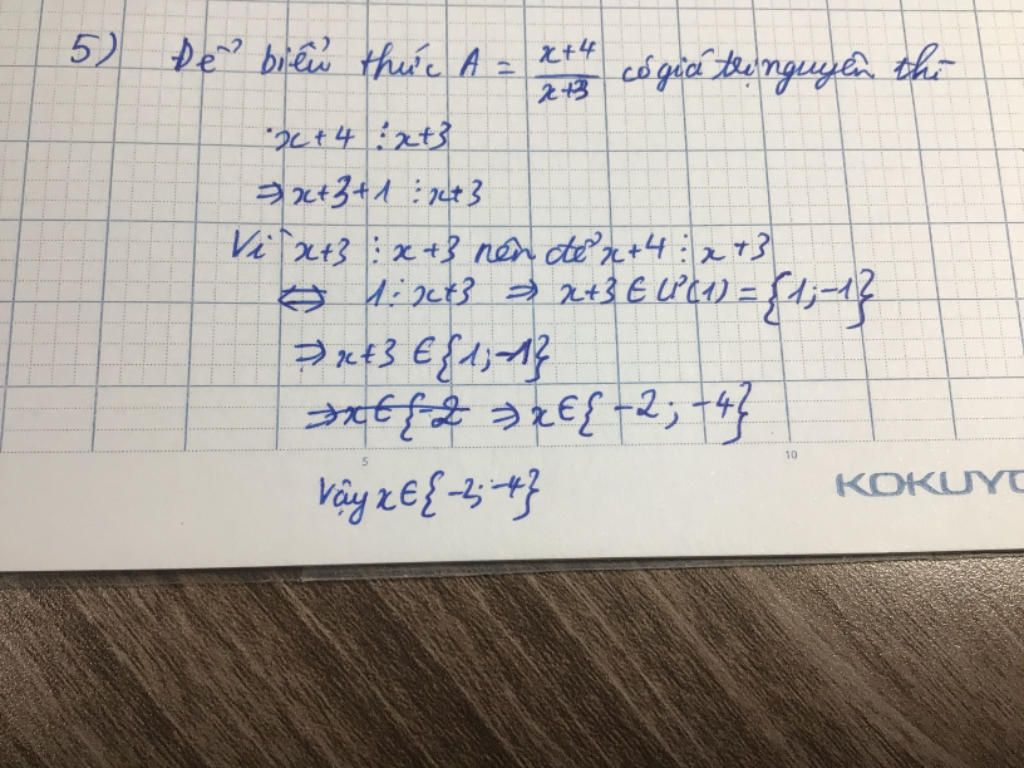 5) Để biểu thức A = \frac{x+4}{x+3} có giá trị nguyên thì
x+4 ⋮ x+3
⇒ x+3+1 ⋮ x+3
Vì x+3 ⋮ x+3 nên để x+4 ⋮ x+3
⇔ 1 ⋮ x+3 ⇒ x+3 ∈ Ư(1) = {1; -1}
⇒ x+3 ∈ {1; -1}
⇒ x ∈ {-2 ⇒ x ∈ {-2; -4}
5 10
Vậy x ∈ {-2; -4}
KOKUYO